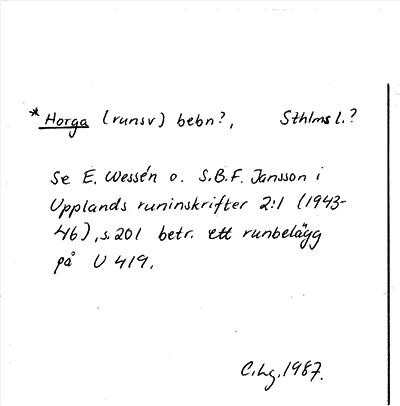 *Horga (runsv) bebn?, Sthlms l.?
Se E. Wessén o. S.B.F. Jansson i
Upplands runinskrifter 2:1 (1943-
46), s. 201 betr. ett runbelägg
på U 419.
C.Lg. 1987.